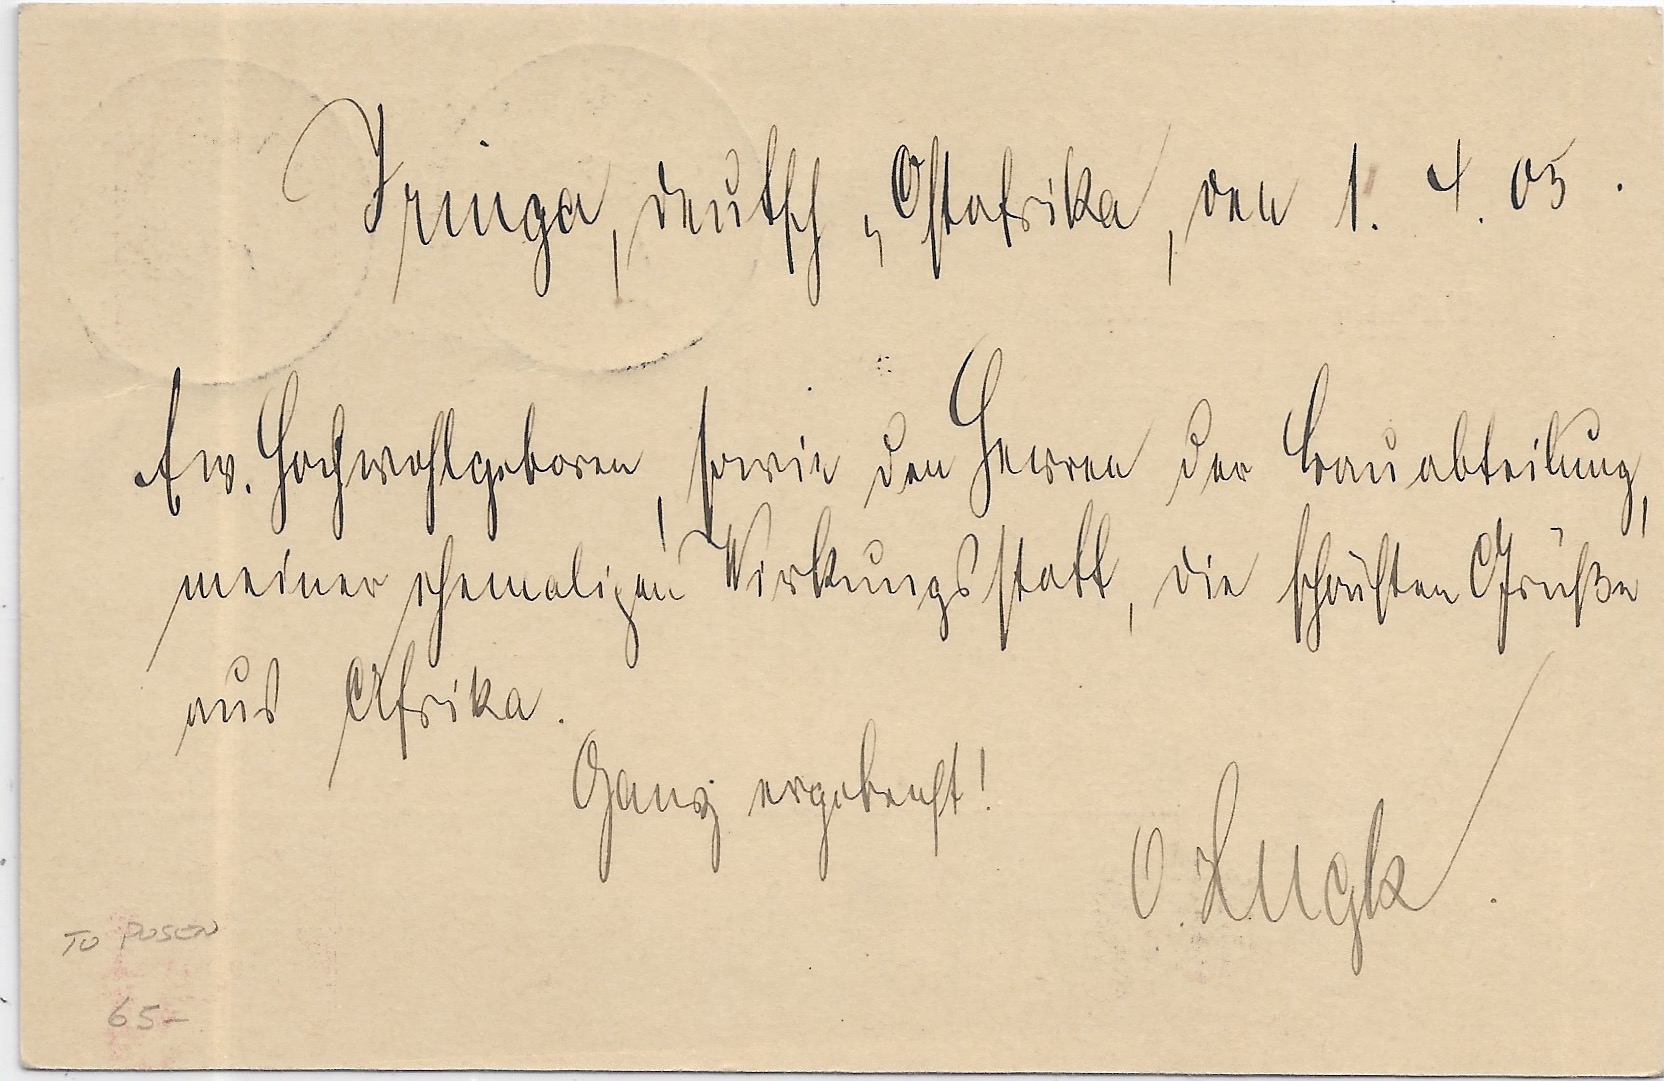 Iringa, deutsch "Ostafrika, den 1. 4. 05.
Ew. Hochwohlgeboren, sowie den Herren der Bauabteilung,
meiner ehemaligen Wirkungsstatt, die schönsten Grüße
aus Afrika.
Ganz ergebenst!
O.
TO POSEN
65-